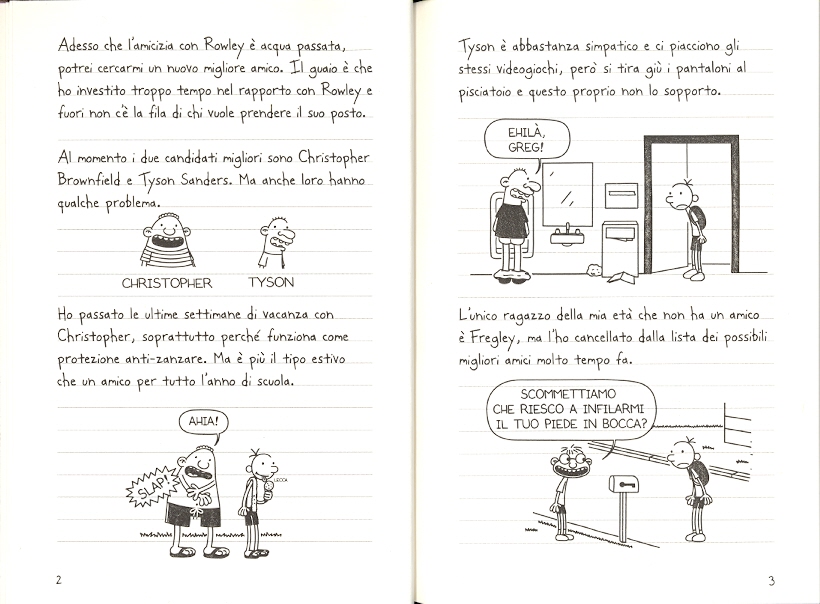 Adesso che l'amicizia con Rowley è acqua passata,
potrei cercarmi un nuovo migliore amico. Il guaio è che
ho investito troppo tempo nel rapporto con Rowley e
fuori non c'è la fila di chi vuole prendere il suo posto.
Al momento i due candidati migliori sono Christopher
Brownfield e Tyson Sanders. Ma anche loro hanno
qualche problema.
CHRISTOPHER
TYSON
Ho passato le ultime settimane di vacanza con
Christopher, soprattutto perché funziona come
protezione anti-zanzare. Ma è più il tipo estivo
che un amico per tutto l'anno di scuola.
AHIA!
SLAP!
LECCA
2
Tyson è abbastanza simpatico e ci piacciono gli
stessi videogiochi, però si tira giù i pantaloni al
pisciatoio e questo proprio non lo sopporto.
EHILÀ,
GREG!
L'unico ragazzo della mia età che non ha un amico
è Fregley, ma l'ho cancellato dalla lista dei possibili
migliori amici molto tempo fa.
SCOMMETTIAMO
CHE RIESCO A INFILARMI
IL TUO PIEDE IN BOCCA?
3